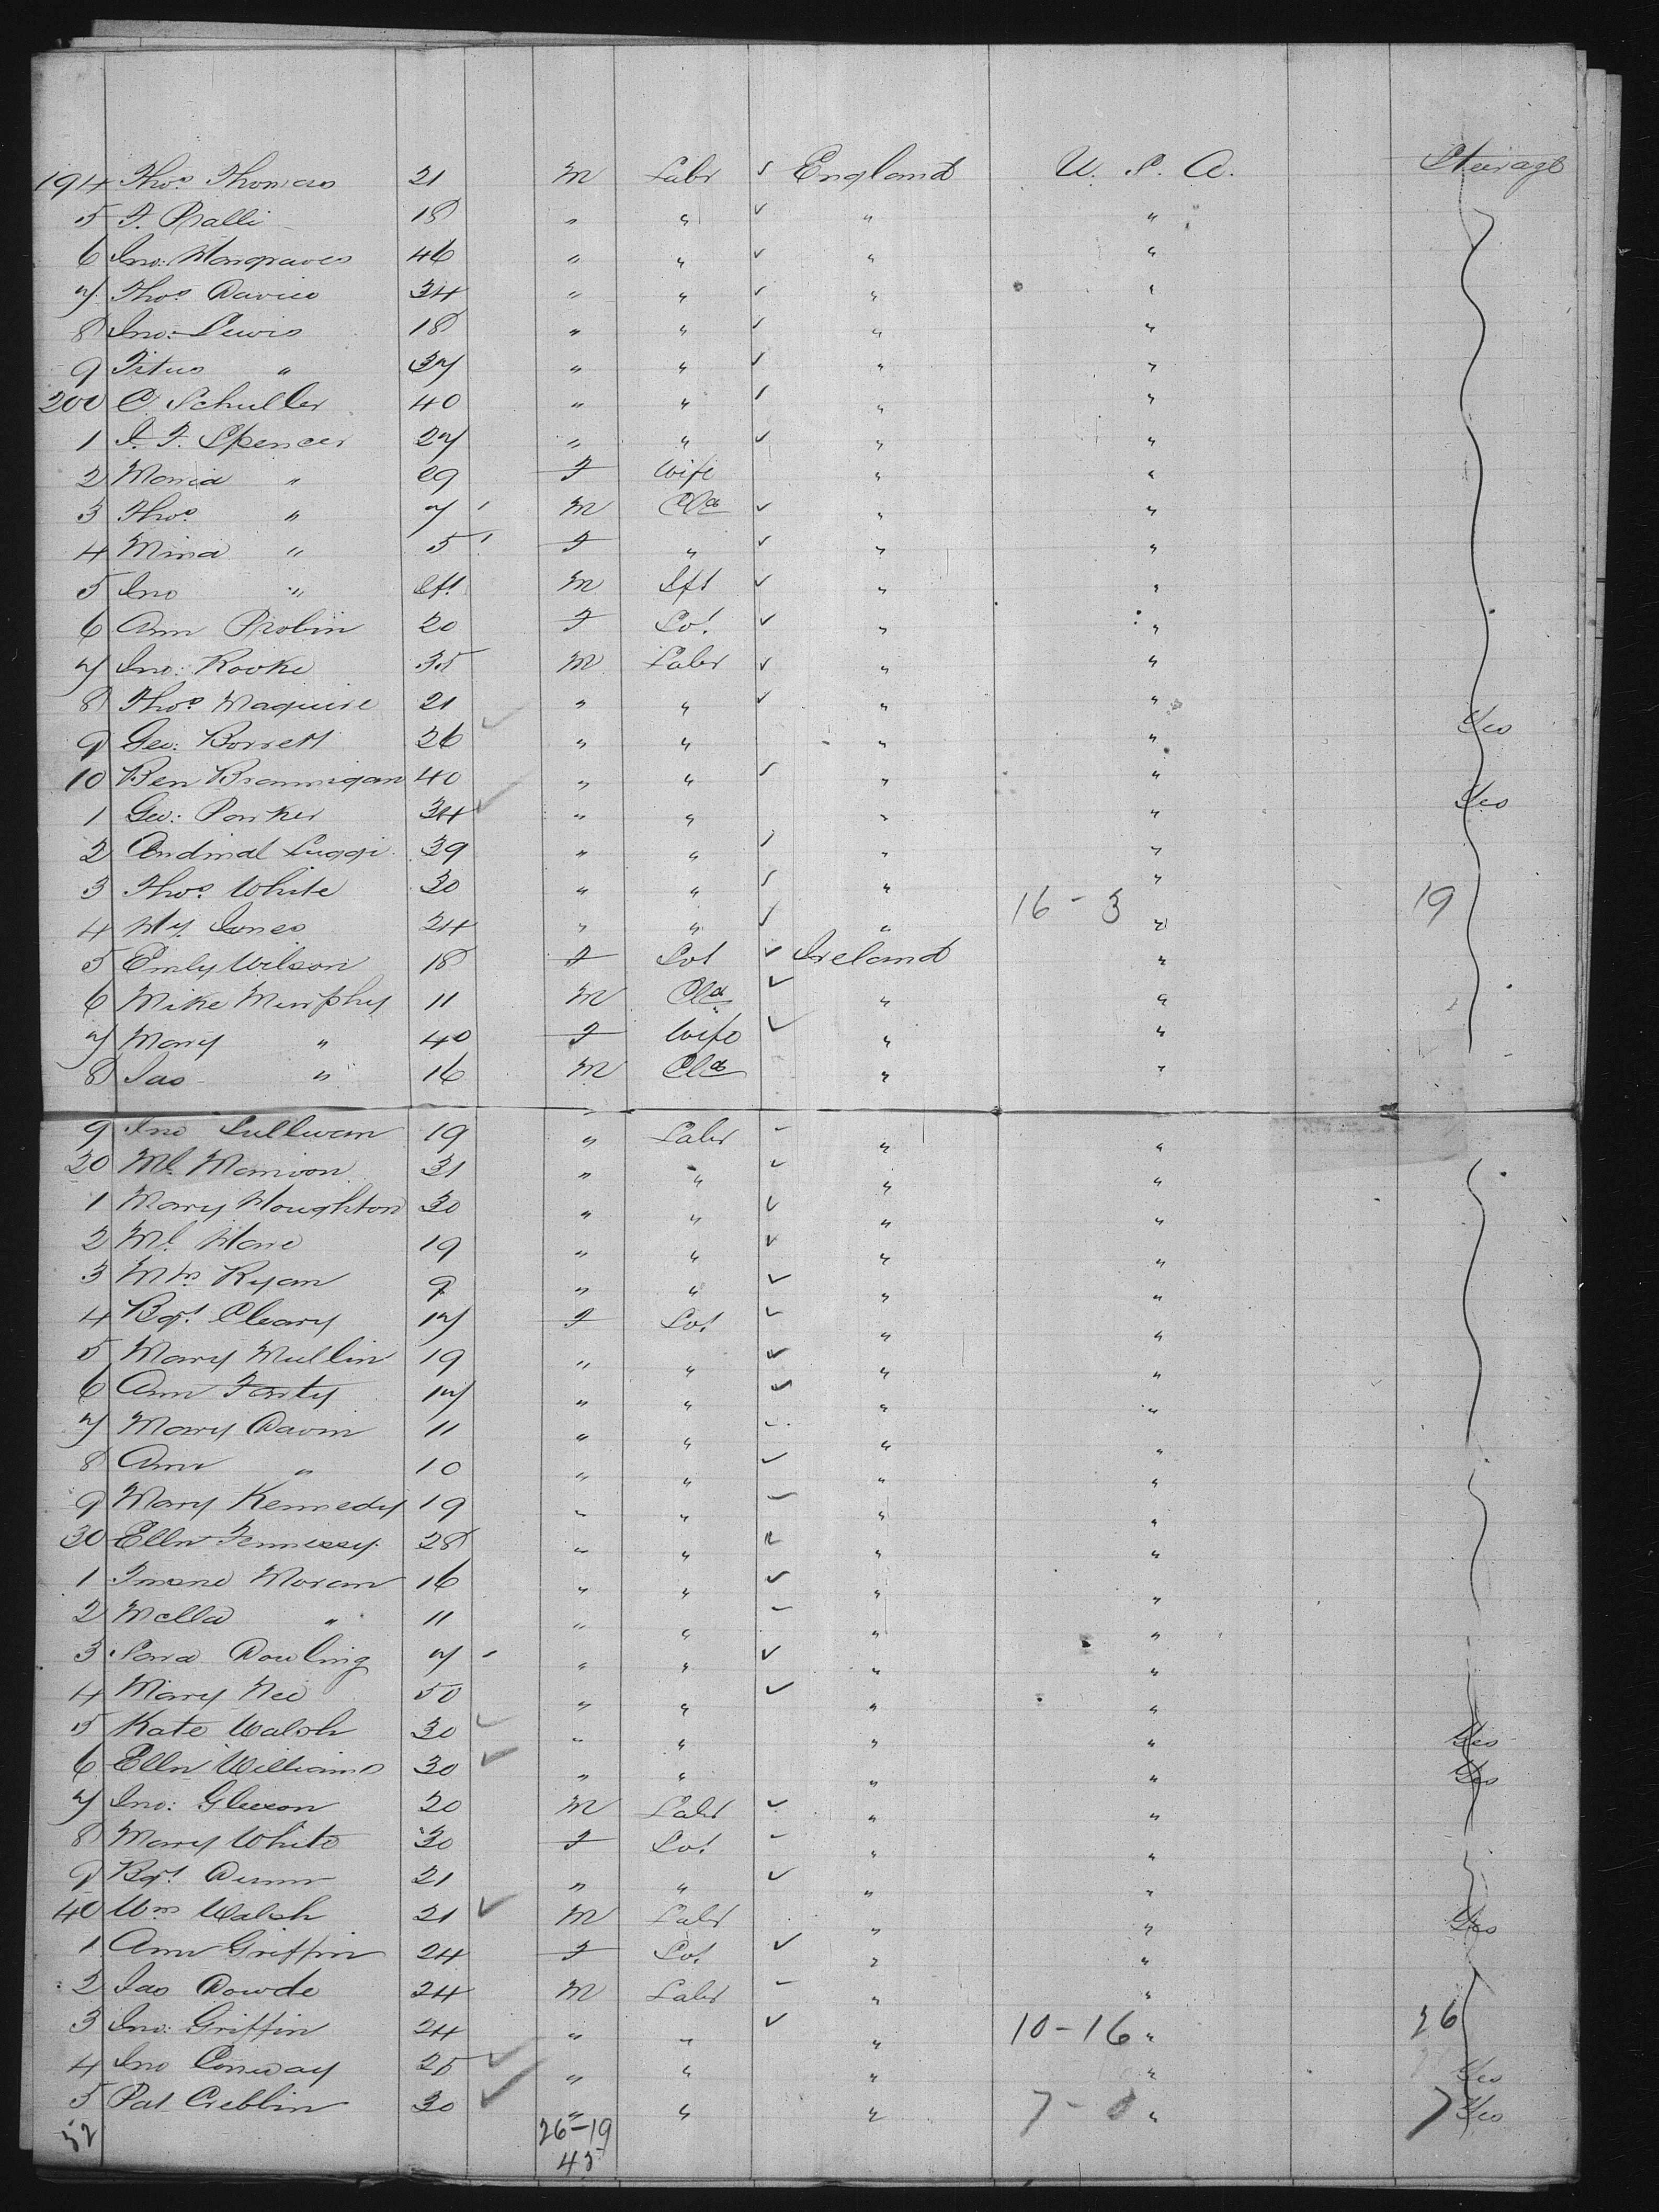 194 Thos. Thomas 21 M Labr ✓ England U. S. A. Steerage
5 F. Ralli 18 " " ✓ " "
6 Jno: Hargraves 46 " " ✓ " "
7 Thos. Davies 34 " " ✓ " "
8 Jno: Lewis 18 " " ✓ " "
9 Titus " 37 " " ✓ " "
200 C. Schuller 40 " " ✓ " "
1 J. F. Spencer 27 " " ✓ " "
2 Maria " 29 F Wife " "
3 Thos. " 7 M Cld ✓ " "
4 Mina " 5 F " ✓ " "
5 Jno " Ift M Ift ✓ " "
6 Ann Probin 20 F Sp. ✓ " "
7 Jno: Rooke 35 M Labr ✓ " "
8 Thos. Maquire 21 " " ✓ " "
9 Geo: Borrett 26 ✓ " " " " Yes
10 Ben Brannigan 40 " " ✓ " "
1 Geo: Parker 34 ✓ " " " " Yes
2 Andinal Luggi 39 " " ✓ " "
3 Thos. White 30 " " ✓ " "
4 Hy. Jones 24 " " ✓ " 16 - 3 " 19
5 Emly Wilson 18 F Sp ✓ Ireland "
6 Mike Murphy 11 M Cld ✓ " "
7 Mary " 40 F Wife ✓ " "
8 Jas " 16 M Cld " "
9 Jno Sullivan 19 " Labr - " "
20 Ml. Manion 31 " " ✓ " "
1 Mary Houghton 30 " " ✓ " "
2 Ml. Hare 19 " " ✓ " "
3 Wm Ryan 9 " " ✓ " "
4 Bgt. Cleary 17 F Sp. ✓ " "
5 Mary Mullin 19 " " ✓ " "
6 Ann Farty 17 " " ✓ " "
7 Mary Davin 11 " " - " "
8 Ann " 10 " " ✓ " "
9 Mary Kennedy 19 " " - " "
30 Elln Fennessy 28 " " ✓ " "
1 Moran 16 " " ✓ " "
2 Mella " 11 " " - " "
3 Sara Dowling 7 " " ✓ " "
4 Mary Nee 50 " " ✓ " "
5 Kate Walsh 30 ✓ " " " " Yes
6 Elln Williams 30 ✓ " " " " Yes
7 Jno: Gleeson 20 M Labr ✓ " "
8 Mary White 30 F Sp. - " "
9 Bgt. Dunn 21 " " ✓ " "
40 Wm Walsh 21 ✓ M Labr " " Yes
1 Ann Griffin 24 F Sp. ✓ " "
2 Jas Dowde 24 M Labr - " "
3 Jno: Griffin 24 " " ✓ " 10 - 16 " 26
4 Jno Conway 25 ✓ " " " " Yes
5 Pat Creblin 30 ✓ " " " 7 - 0 " 7 Yes
52 26-19
45